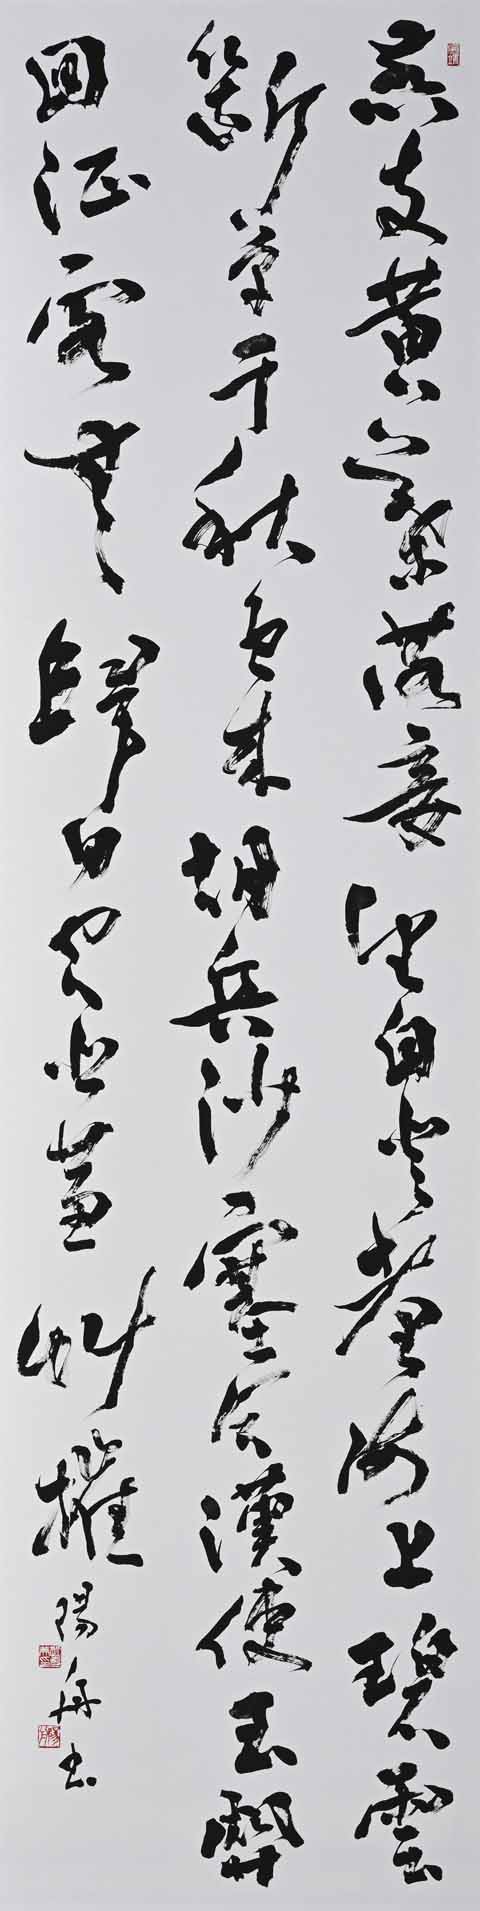 燕支黄葉落妾望自登臺海上碧雲
斷單于秋色來胡兵沙塞合漢使玉關
回征客無歸日空悲蕙艸摧
陽舟书